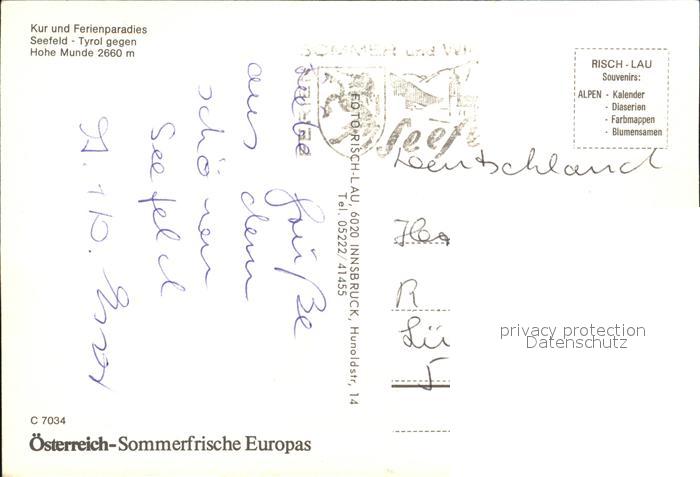 Kur und Ferienparadies
Seefeld - Tyrol gegen
Hohe Munde 2660 m
SOMMER und WI
Seefe
RISCH - LAU
Souvenirs:
ALPEN - Kalender
- Diaserien
- Farbmappen
- Blumensamen
Liebe Grüße
aus dem
schönen
Seefeld
FOTO RISCH-LAU, 6020 INNSBRUCK, Hunoldstr. 14
Tel. 05222/41455
Deutschland
R
Lü
privacy protection
Datenschutz
C 7034
Österreich-Sommerfrische Europas